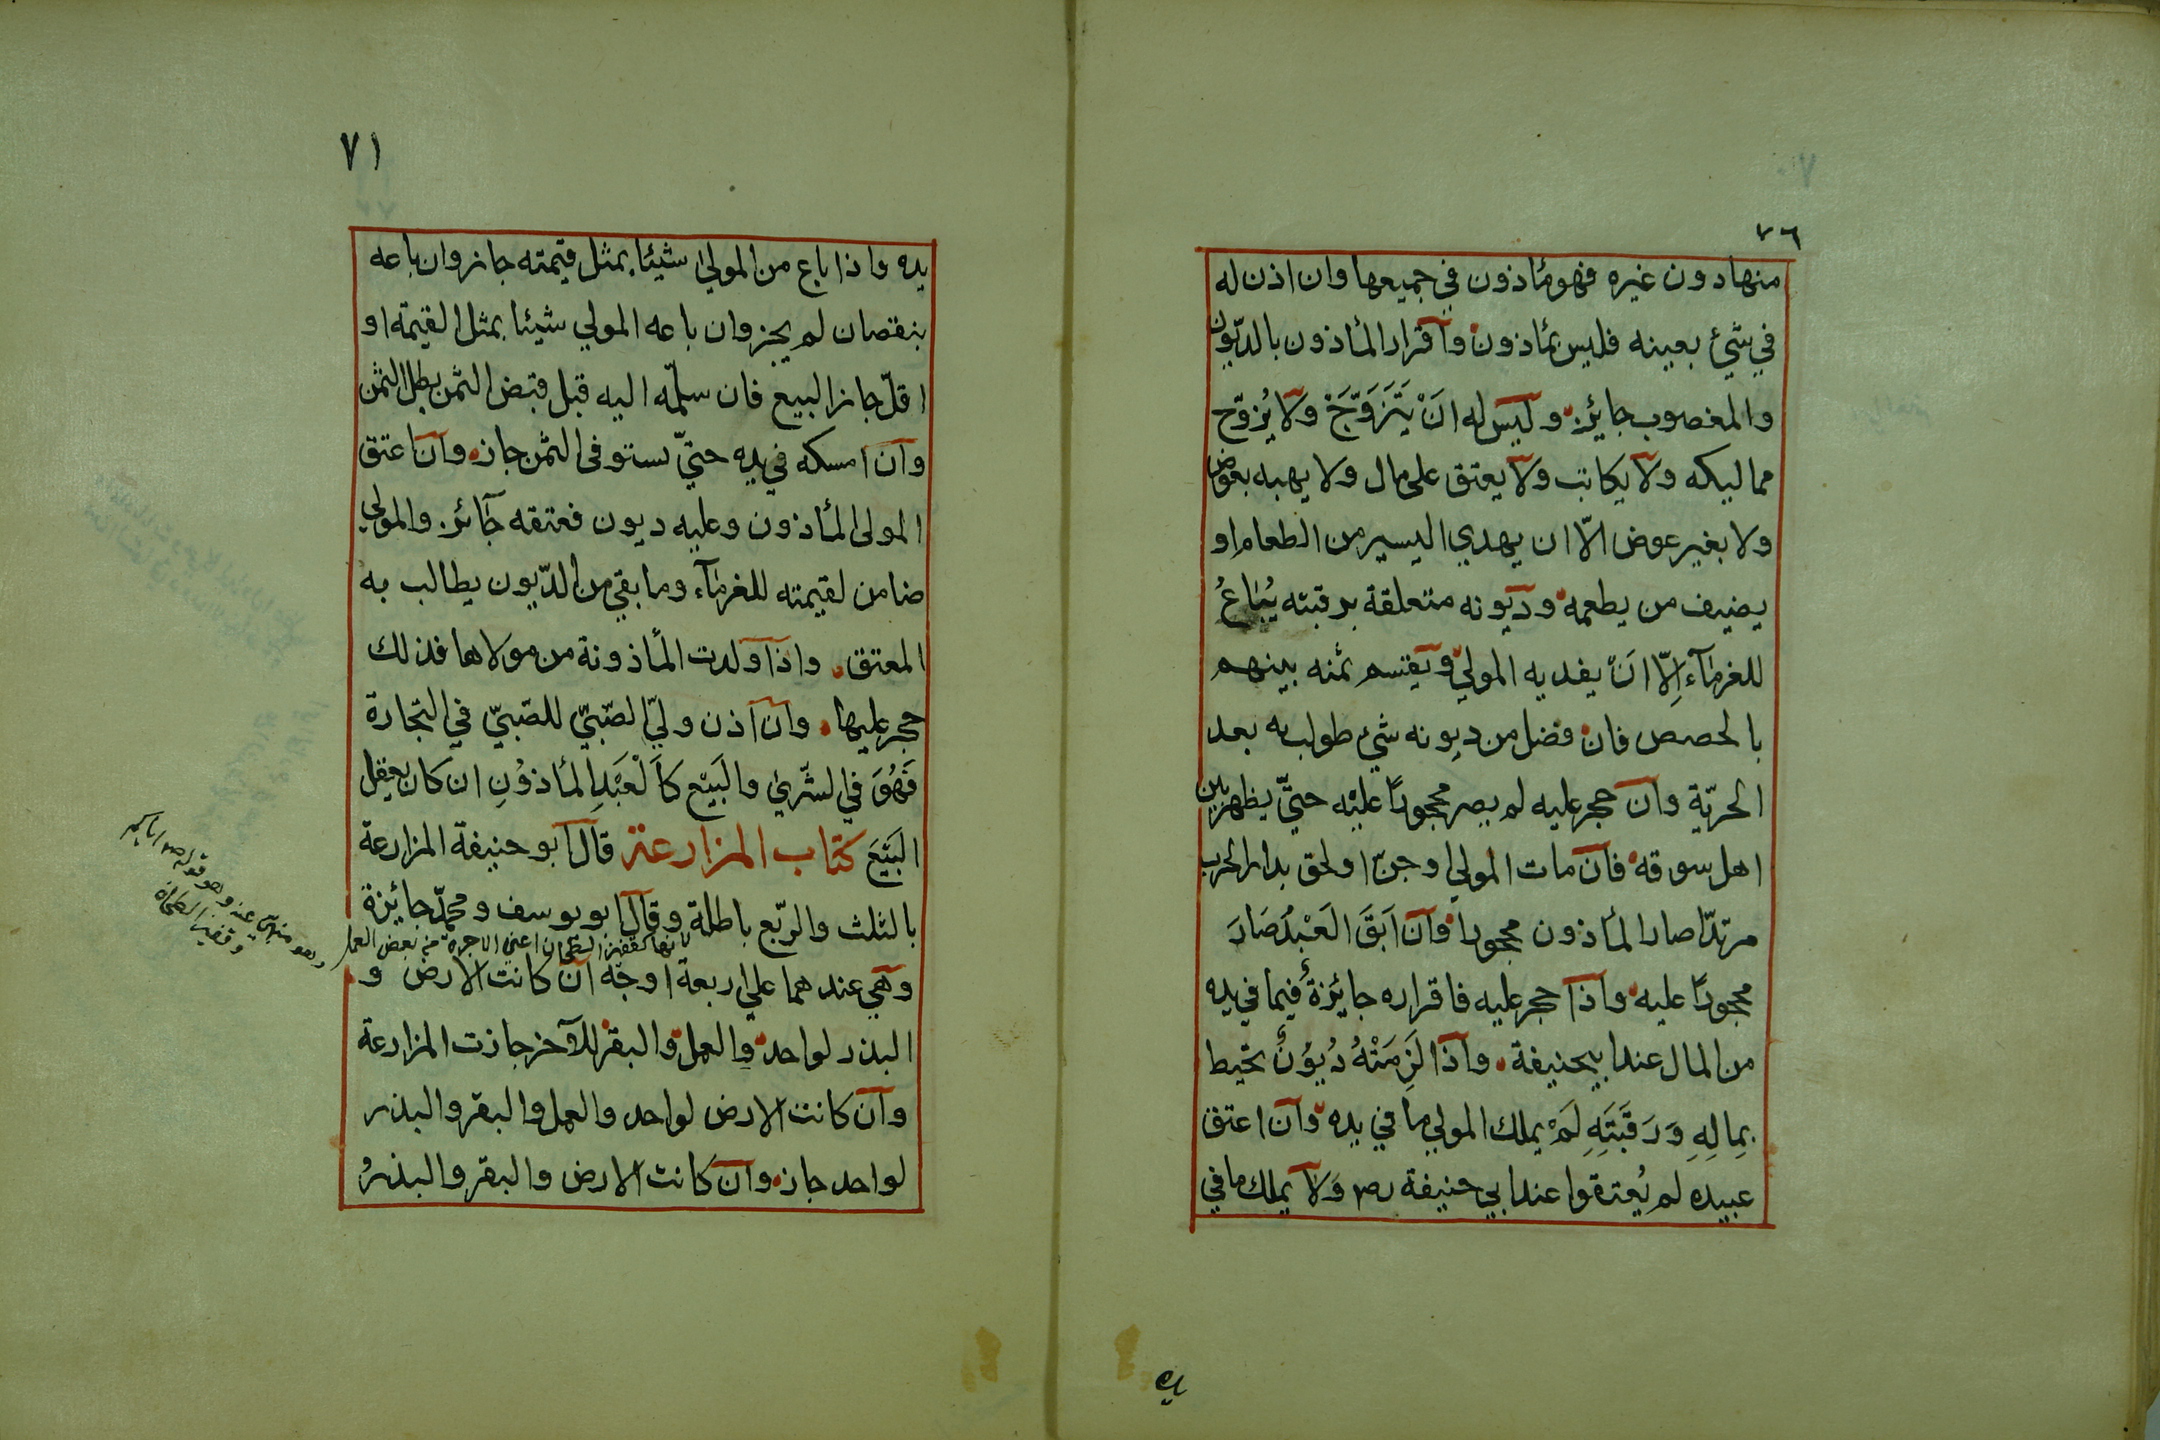 ٧٦
منها دون غيره فهو مأذون في جميعها وان اذن له
في شئ بعينه فليس بمأذون وآقرار المأذون بالديّون
والمغصوب جايئز وليس له انَْ يَتَزَوَّجَ ولا يُزوّج
مماليكه ولا يكاتب ولا يعتق على مال ولا يهبه بعوض
ولا بغير عوض الاّ ان يهدي اليسير من الطعام او
يضيف من يطعمه وديونه متعلقة برقبته يُبَاعُ
للغرمآء اِلاّ انَْ يفديه المولي ويقتسم ثمنه بينهم
بالحصص فان فضل من ديونه شئ طولب به بعد
الحريّة وان حجر عليه لم يصر محجورًا عليْه حتيّ يظهر بين
اهل سوقه فان مات المولي او جنّ او لحق بدار الحرب
مرتدّا صار المأذون محجورا وان اَبَقَ العَبْدُ صَارَ
محجورًا عليه واذا حجر عليه فاقراره جايئزةٌ فيما في يده
من المال عند ابيحنيفة واذا لَزِمَتْهُ دُيوُنٌ تحيط
بِمالِهِ وَرَقَبَتِهِ لَمْ يملك المولي ما في يده وان اعتق
عبيده لم يُعتقوا عند ابي حنيفة رح ولا يملك ما في
يده
٧١
يده واذا باع من المولي شيئا بمثل قيمته جاز وان باعه
بنقصان لم يجز وان باعه المولي شيئا بمثل القيمة او
اقلّ جاز البيع فان سلّمه اليه قبل قبض الثمن بطل الثمن
وان امسكه في يده حتيّ يستوفى الثمن جاز وان اعتق
المولى المأذون وعليه ديون فعتقه جآئز والمولي
ضامن لقيمته للغرمآء وما بقي من الديّون يطالب به
المعتق واذا ولدت المأذونة من مولاها فذلك
حجر عليها وان اذن وليّ الصّبيّ للصّبيّ في التجارة
فَهُوَ في الشّري والبَيْع كاَلْعَبْدِ المأذوُنِ ان كان يعقل
البَيْعَ كتاب المزارعة قال ابو حنيفة المزارعة
بالثلث والرّبع باطلة وقال ابو يوسف ومحمّد جايئزة
لانها كقفيز الطحان اعني الاجرة من بعض العمل
وهو منهيّ عنه وهو قوله
وقفيز الطحان
وهي عندهما علي اربعة اوجه ان كانت الارض و
البذر لواحد والعمل والبقر للآخر جازت المزارعة
وان كانت الارض لواحد والعمل والبقر والبذر
لواحد جاز وان كانت الارض والبقر والبذرُ